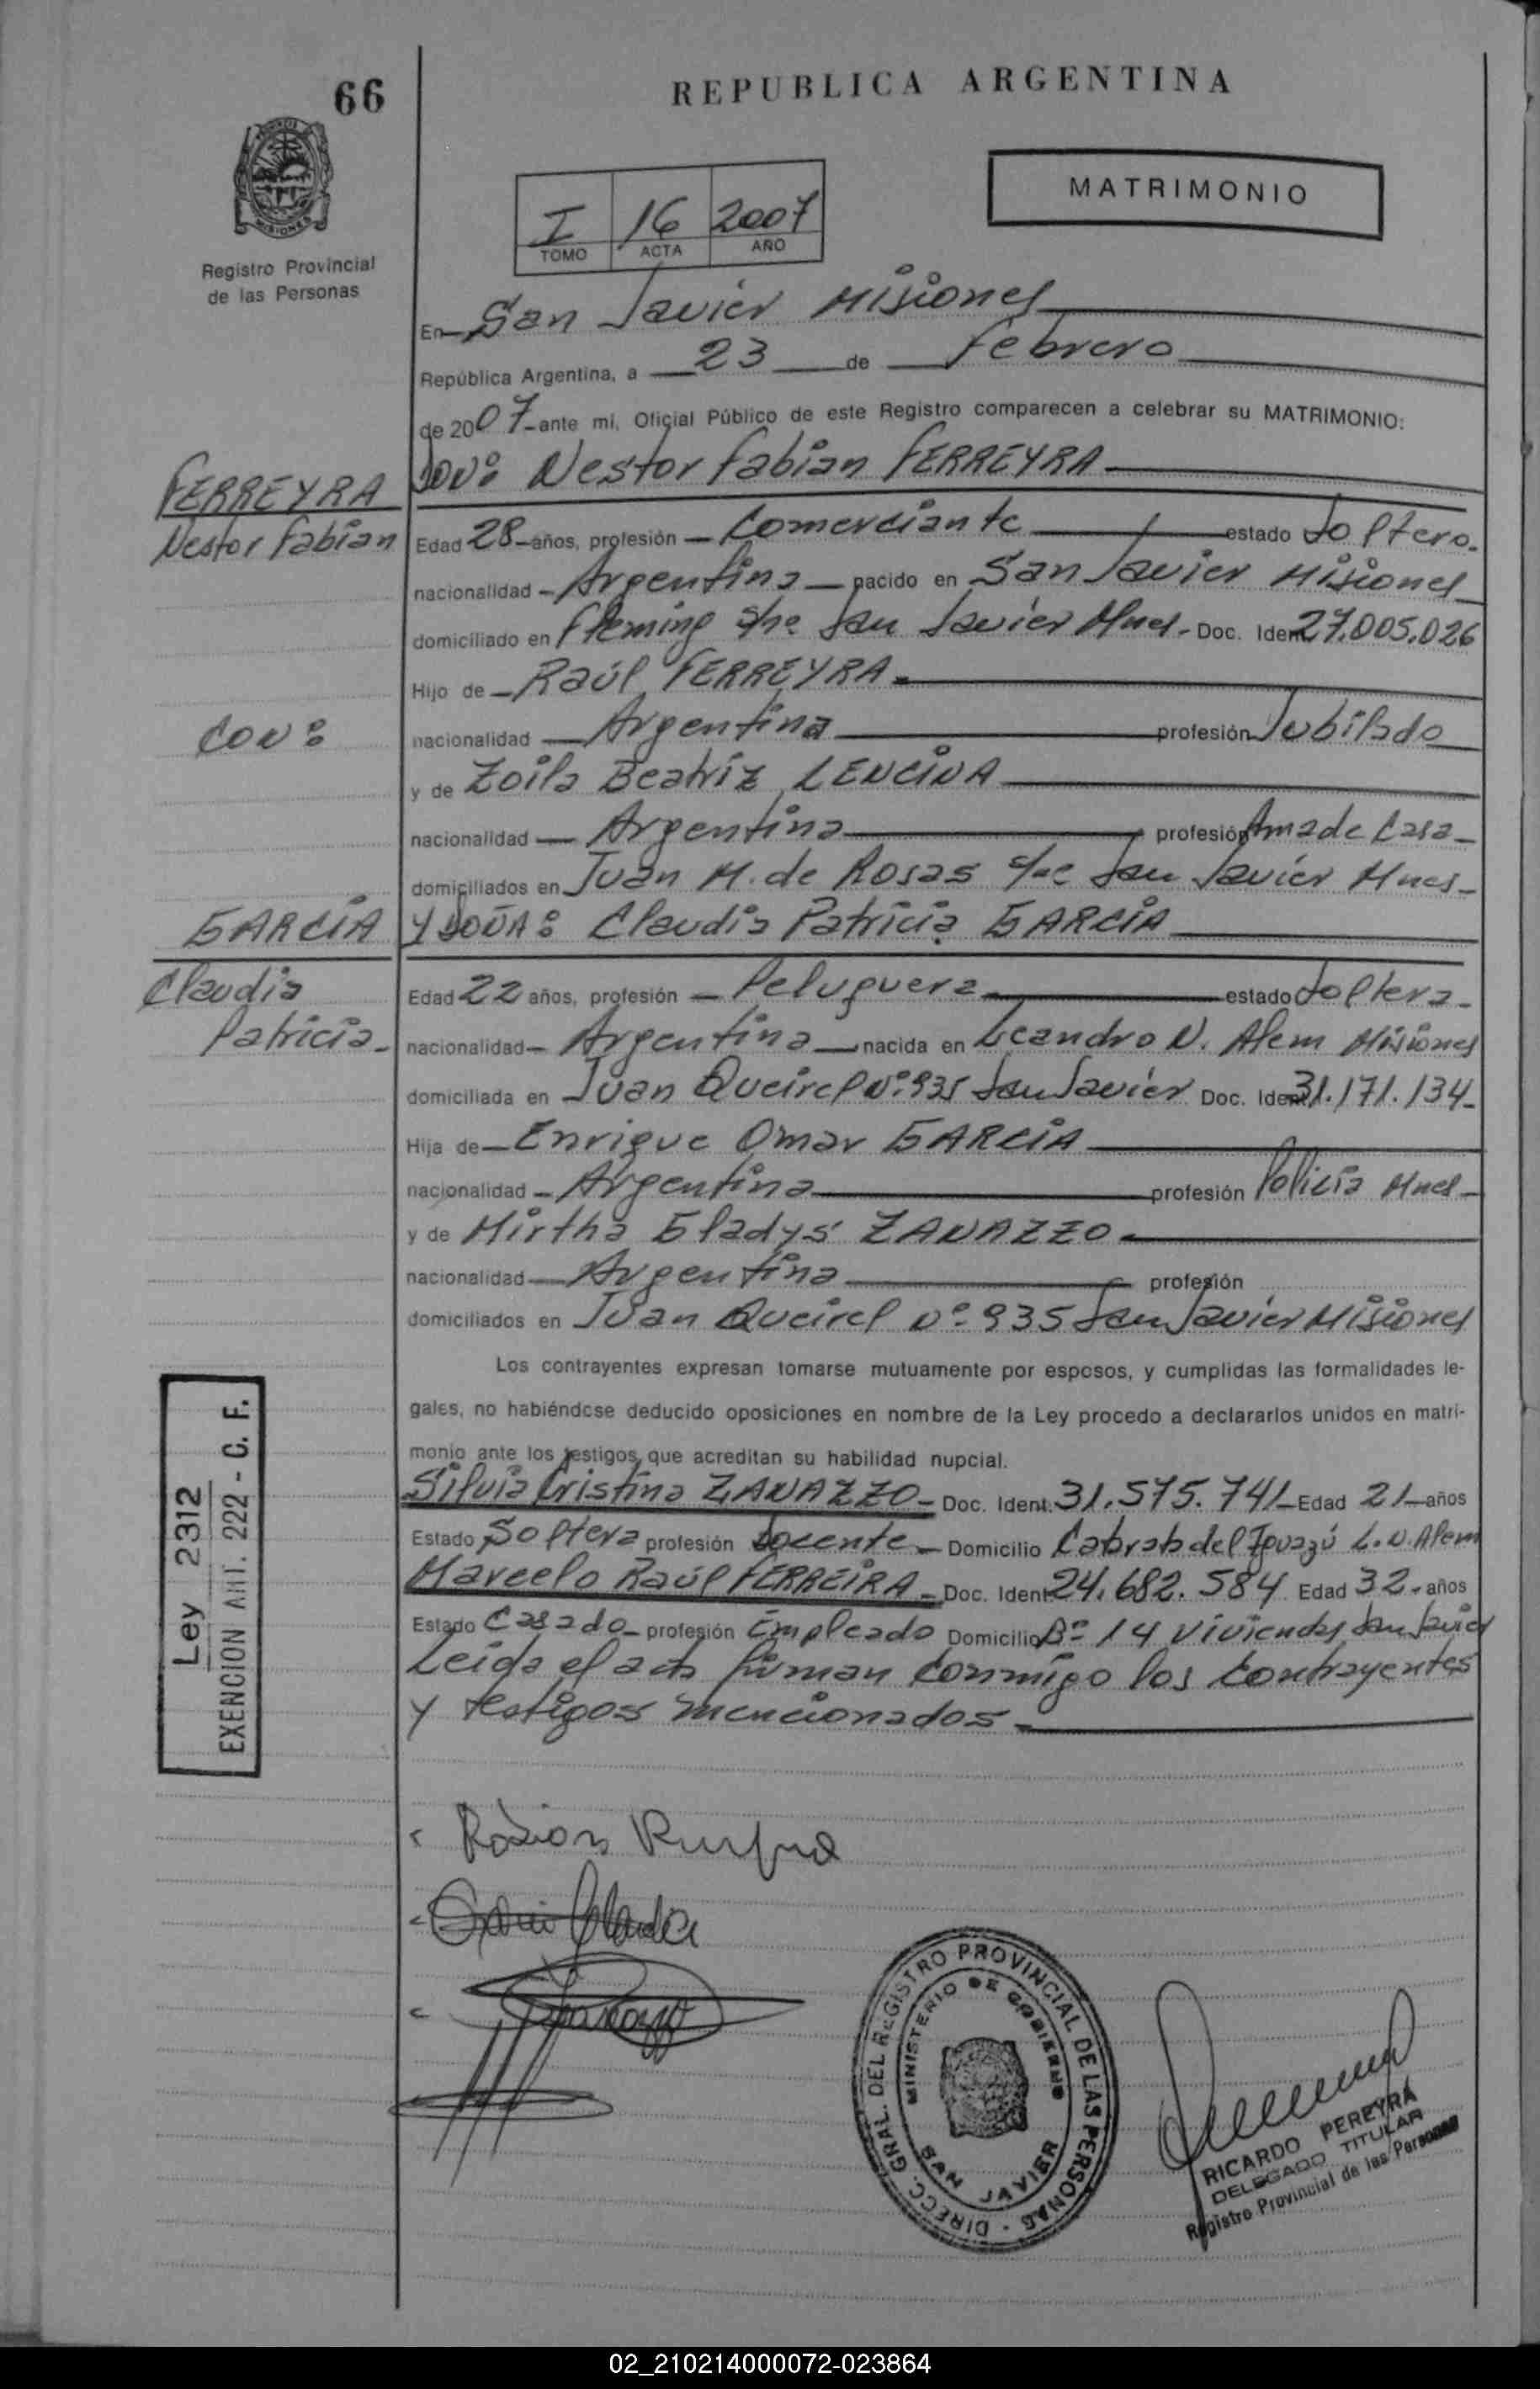 66
REPUBLICA ARGENTINA
MATRIMONIO
I 16 2007
TOMO ACTA AÑO
MISIONES
Registro Provincial
de las Personas
En San Javier Misiones
República Argentina, a 23 de febrero
de 2007 ante mí, Oficial Público de este Registro comparecen a celebrar su MATRIMONIO:
FERREYRA
Nestor Fabian
DON: Nestor Fabian FERREYRA
Edad 28 años, profesión Comerciante estado Soltero.
nacionalidad Argentina nacido en San Javier Misiones
domiciliado en Fleming s/nº San Javier Mnes. Doc. Ident. 27.005.026
Hijo de Raúl FERREYRA
CON:
nacionalidad Argentina profesión Jubilado
y de Zoila Beatriz LENCINA
nacionalidad Argentina profesión Ama de Casa
domiciliados en Juan M. de Rosas San Javier Mnes
GARCIA
Claudia
Patricia
Y DOÑA: Claudia Patricia GARCIA
Edad 22 años, profesión Peluquera estado Soltera
nacionalidad Argentina nacida en Leandro N. Alem Misiones
domiciliada en Juan Queirel Nº 935 San Javier Doc. Ident. 31.171.134
Hija de Enrique Omar GARCIA
nacionalidad Argentina profesión Policía Mnes
y de Mirtha Gladys ZANAZZO
nacionalidad Argentina profesión
domiciliados en Juan Queirel Nº 935 San Javier Misiones
Los contrayentes expresan tomarse mutuamente por esposos, y cumplidas las formalidades le-
gales, no habiéndose deducido oposiciones en nombre de la Ley procedo a declararlos unidos en matri-
monio ante los testigos que acreditan su habilidad nupcial.
Ley 2312
EXENCION ART. 222 - C. F.
Silvia Cristina ZANAZZO Doc. Ident. 31.575.741 Edad 21 años
Estado Soltera profesión Docente Domicilio del Iguazú L.N. Alem
Marcelo Raúl FERREIRA Doc. Ident. 24.682.584 Edad 32 años
Estado Casado profesión Empleado Domicilio Bº 14 viviendas San Javier
Leida el acta firman conmigo los contrayentes
y testigos mencionados
DIRECC. GRAL. DEL REGISTRO PROVINCIAL DE LAS PERSONAS
MINISTERIO DE GOBIERNO
SAN JAVIER
RICARDO PEREYRA
DELEGADO TITULAR
Registro Provincial de las Personas
02_210214000072-023864